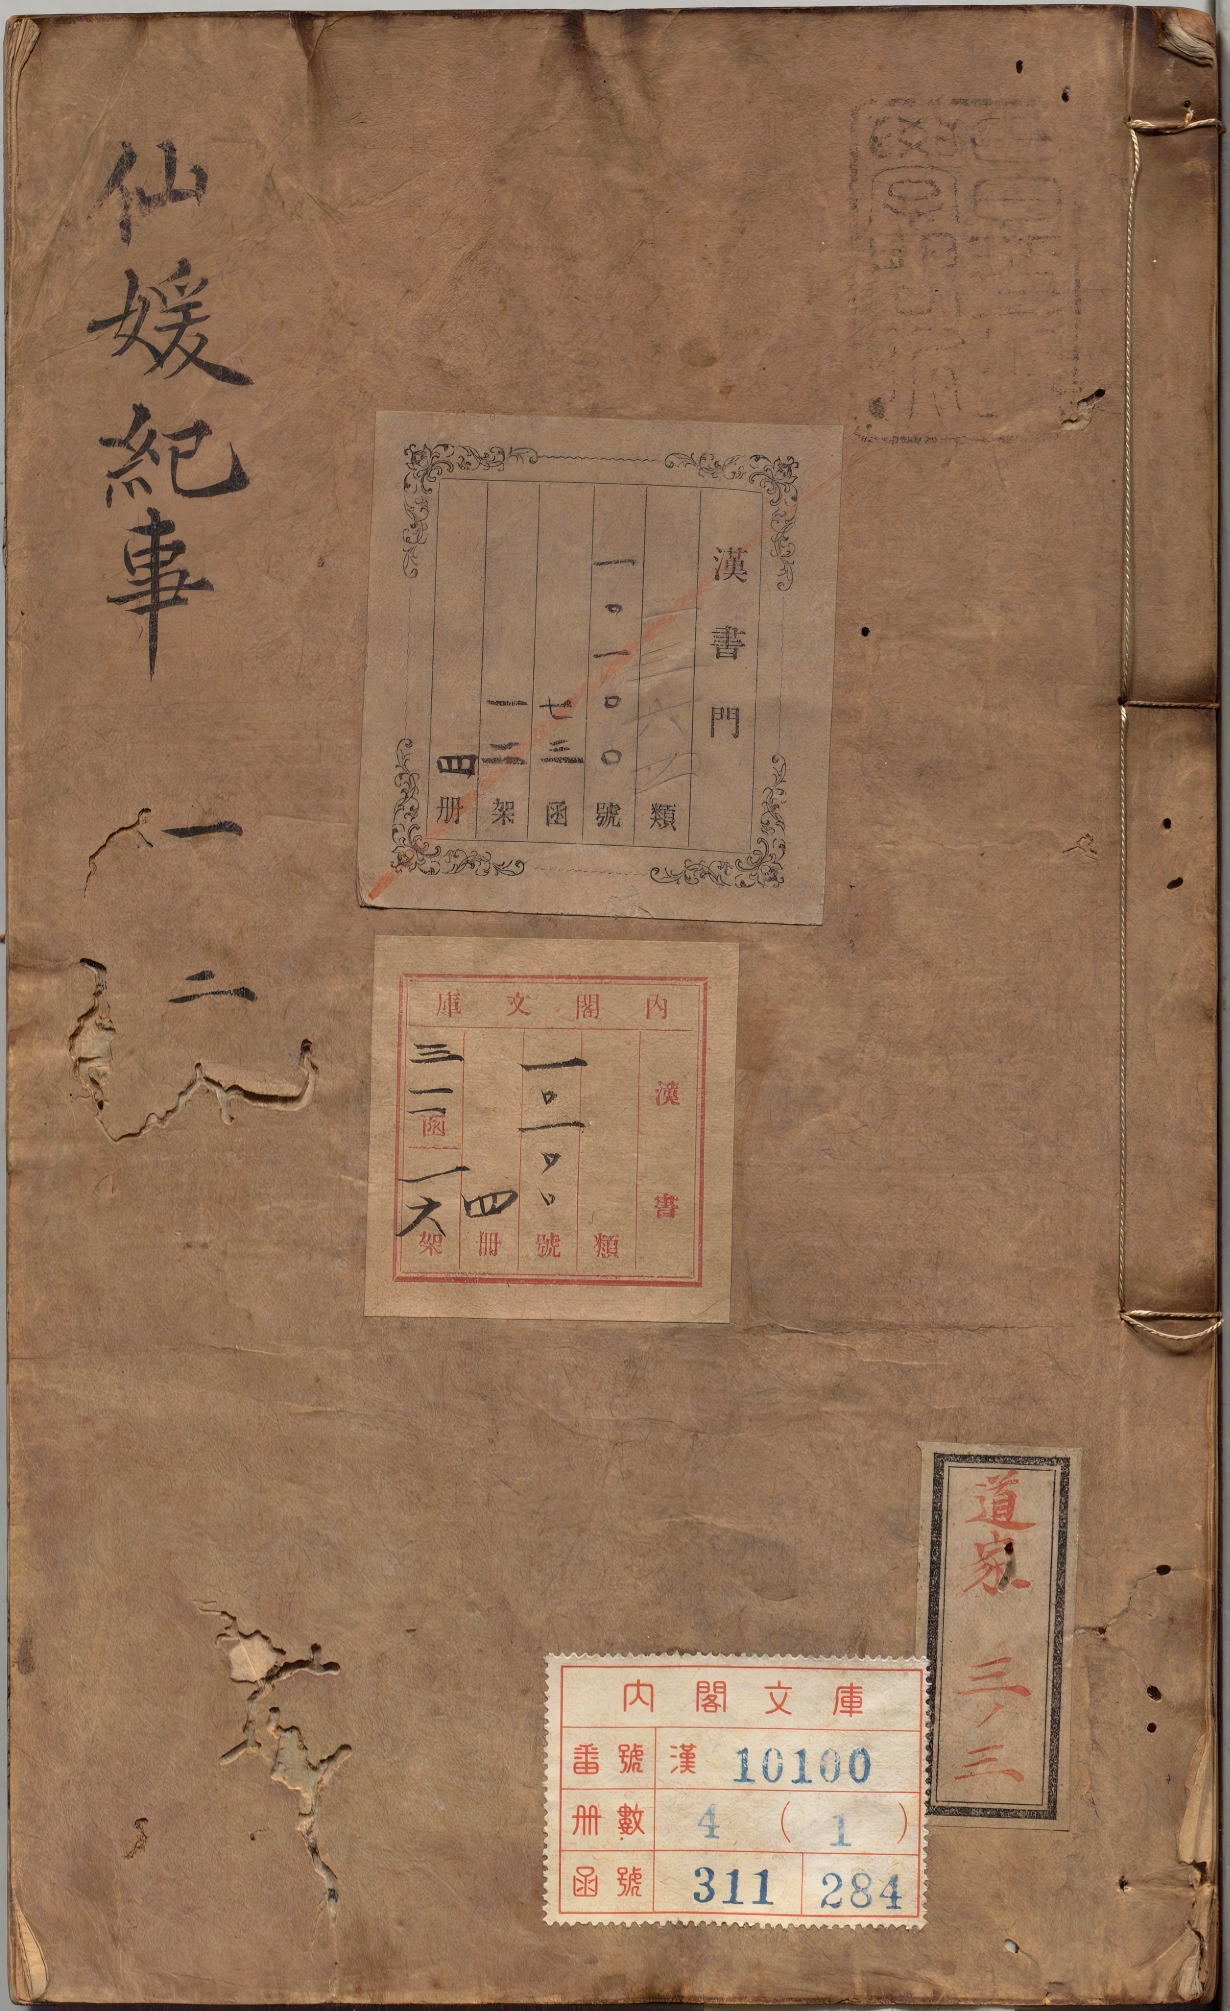 仙媛紀事
一
二
漢書門
類
一〇一〇〇號
七三函
一二架
四册
內閣文庫
漢書
類
一〇一〇〇號
四冊
三一一函
一六架
道家 三ノ三
內閣文庫
番號 漢 10100
冊數 4 (1)
函號 311 284